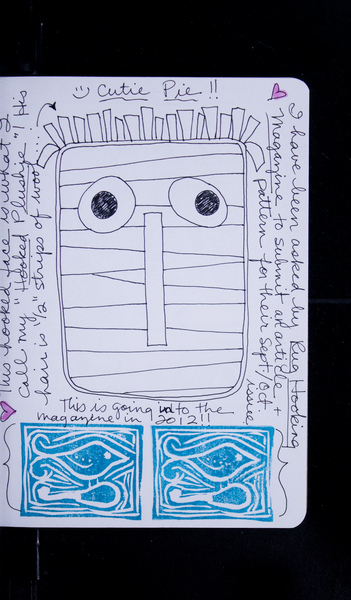 Cutie Pie !!
I have been asked by Rug Hooking
Magazine to submit an article +
pattern for their Sept/Oct.
issue.
This hooked face is what I
call my "Hooked Plushie"! His
hair is ½" strips of wool...
This is going into the
magazine in 2012!!